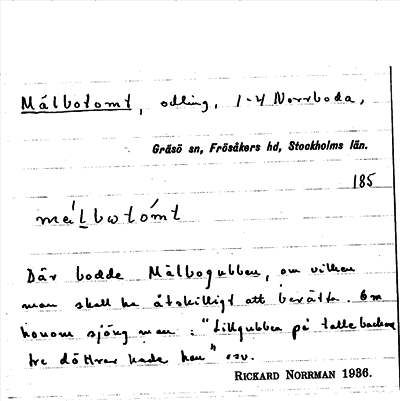 Målbotomt, odling, 1-4 Norrboda,
Gräsö sn, Frösåkers hd, Stockholms län.
185
málbωtómt
Där bodde Målbogubben, om vilken
man skall ha åtskilligt att berätta. Om
honom sjöng man: "Lillgubben på tallebacken
tre döttrar hade han" osv.
RICKARD NORRMAN 1936.